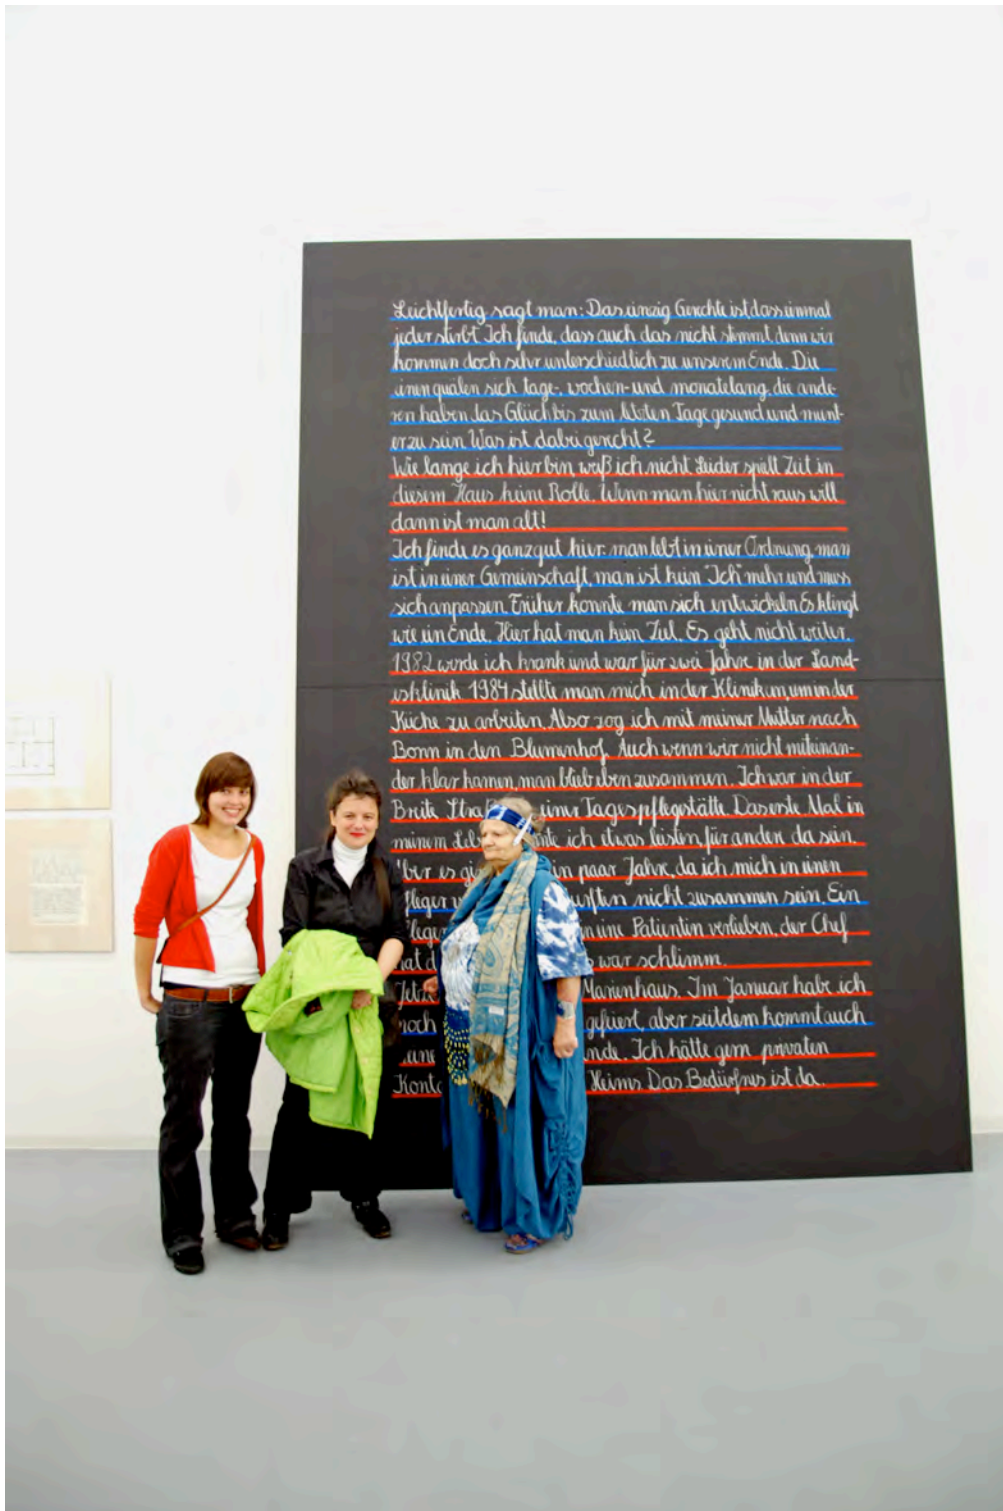 Leichtfertig sagt man: Das einzig Gerechte ist dass einmal
jeder stirbt. Ich finde, dass auch das nicht stimmt denn wir
kommen doch sehr unterschiedlich zu unserem Ende. Die
einen quälen sich tage-, wochen- und monatelang, die ande-
ren haben das Glück bis zum letzten Tage gesund und munt-
er zu sein. Was ist dabei gerecht?
Wie lange ich hier bin, weiß ich nicht. Leider spielt Zeit in
diesem Haus keine Rolle. Wenn man hier nicht raus will
dann ist man alt!
Ich finde es ganz gut hier: man lebt in einer Ordnung, man
ist in einer Gemeinschaft, man ist kein "Ich" mehr und muss
sich anpassen. Früher konnte man sich entwickeln. Es klingt
wie ein Ende. Hier hat man kein Ziel. Es geht nicht weiter.
1982 wurde ich krank und war für zwei Jahre in der Land-
esklinik 1984 stellte man mich in der Klinik an, um in der
Küche zu arbeiten. Also zog ich mit meiner Mutter nach
Bonn in den Blumenhof. Auch wenn wir nicht miteinan-
der klar kamen, man blieb eben zusammen. Ich war in der
Breite einer Tagespflegestätte. Das erste Mal in
meinem ich etwas leisten, für andere da sein.
es ein paar Jahre, da ich mich in einen
nicht zusammen sein. Ein
in eine Patientin verlieben, der Chef
war schlimm.
Marienhaus. Im Januar habe ich
noch gefeiert, aber seitdem kommt auch
Ich hätte gern privaten
Heims. Das Bedürfnis ist da.